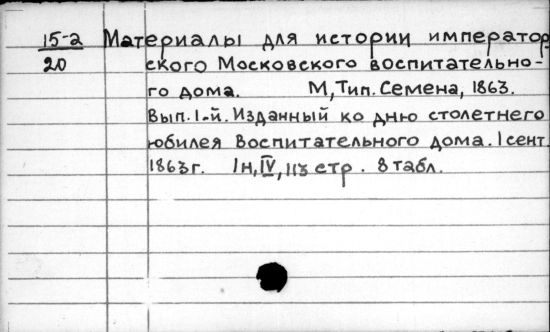 15-2 Материалы для истории император
20 ского Московского воспитательно-
го дома. М, Тип. Семена, 1863.
Вып. 1-й. Изданный ко дню столетнего
юбилея Воспитательного дома. 1 сент.
1863 г. 1 н, IV, 113 стр. 8 табл.